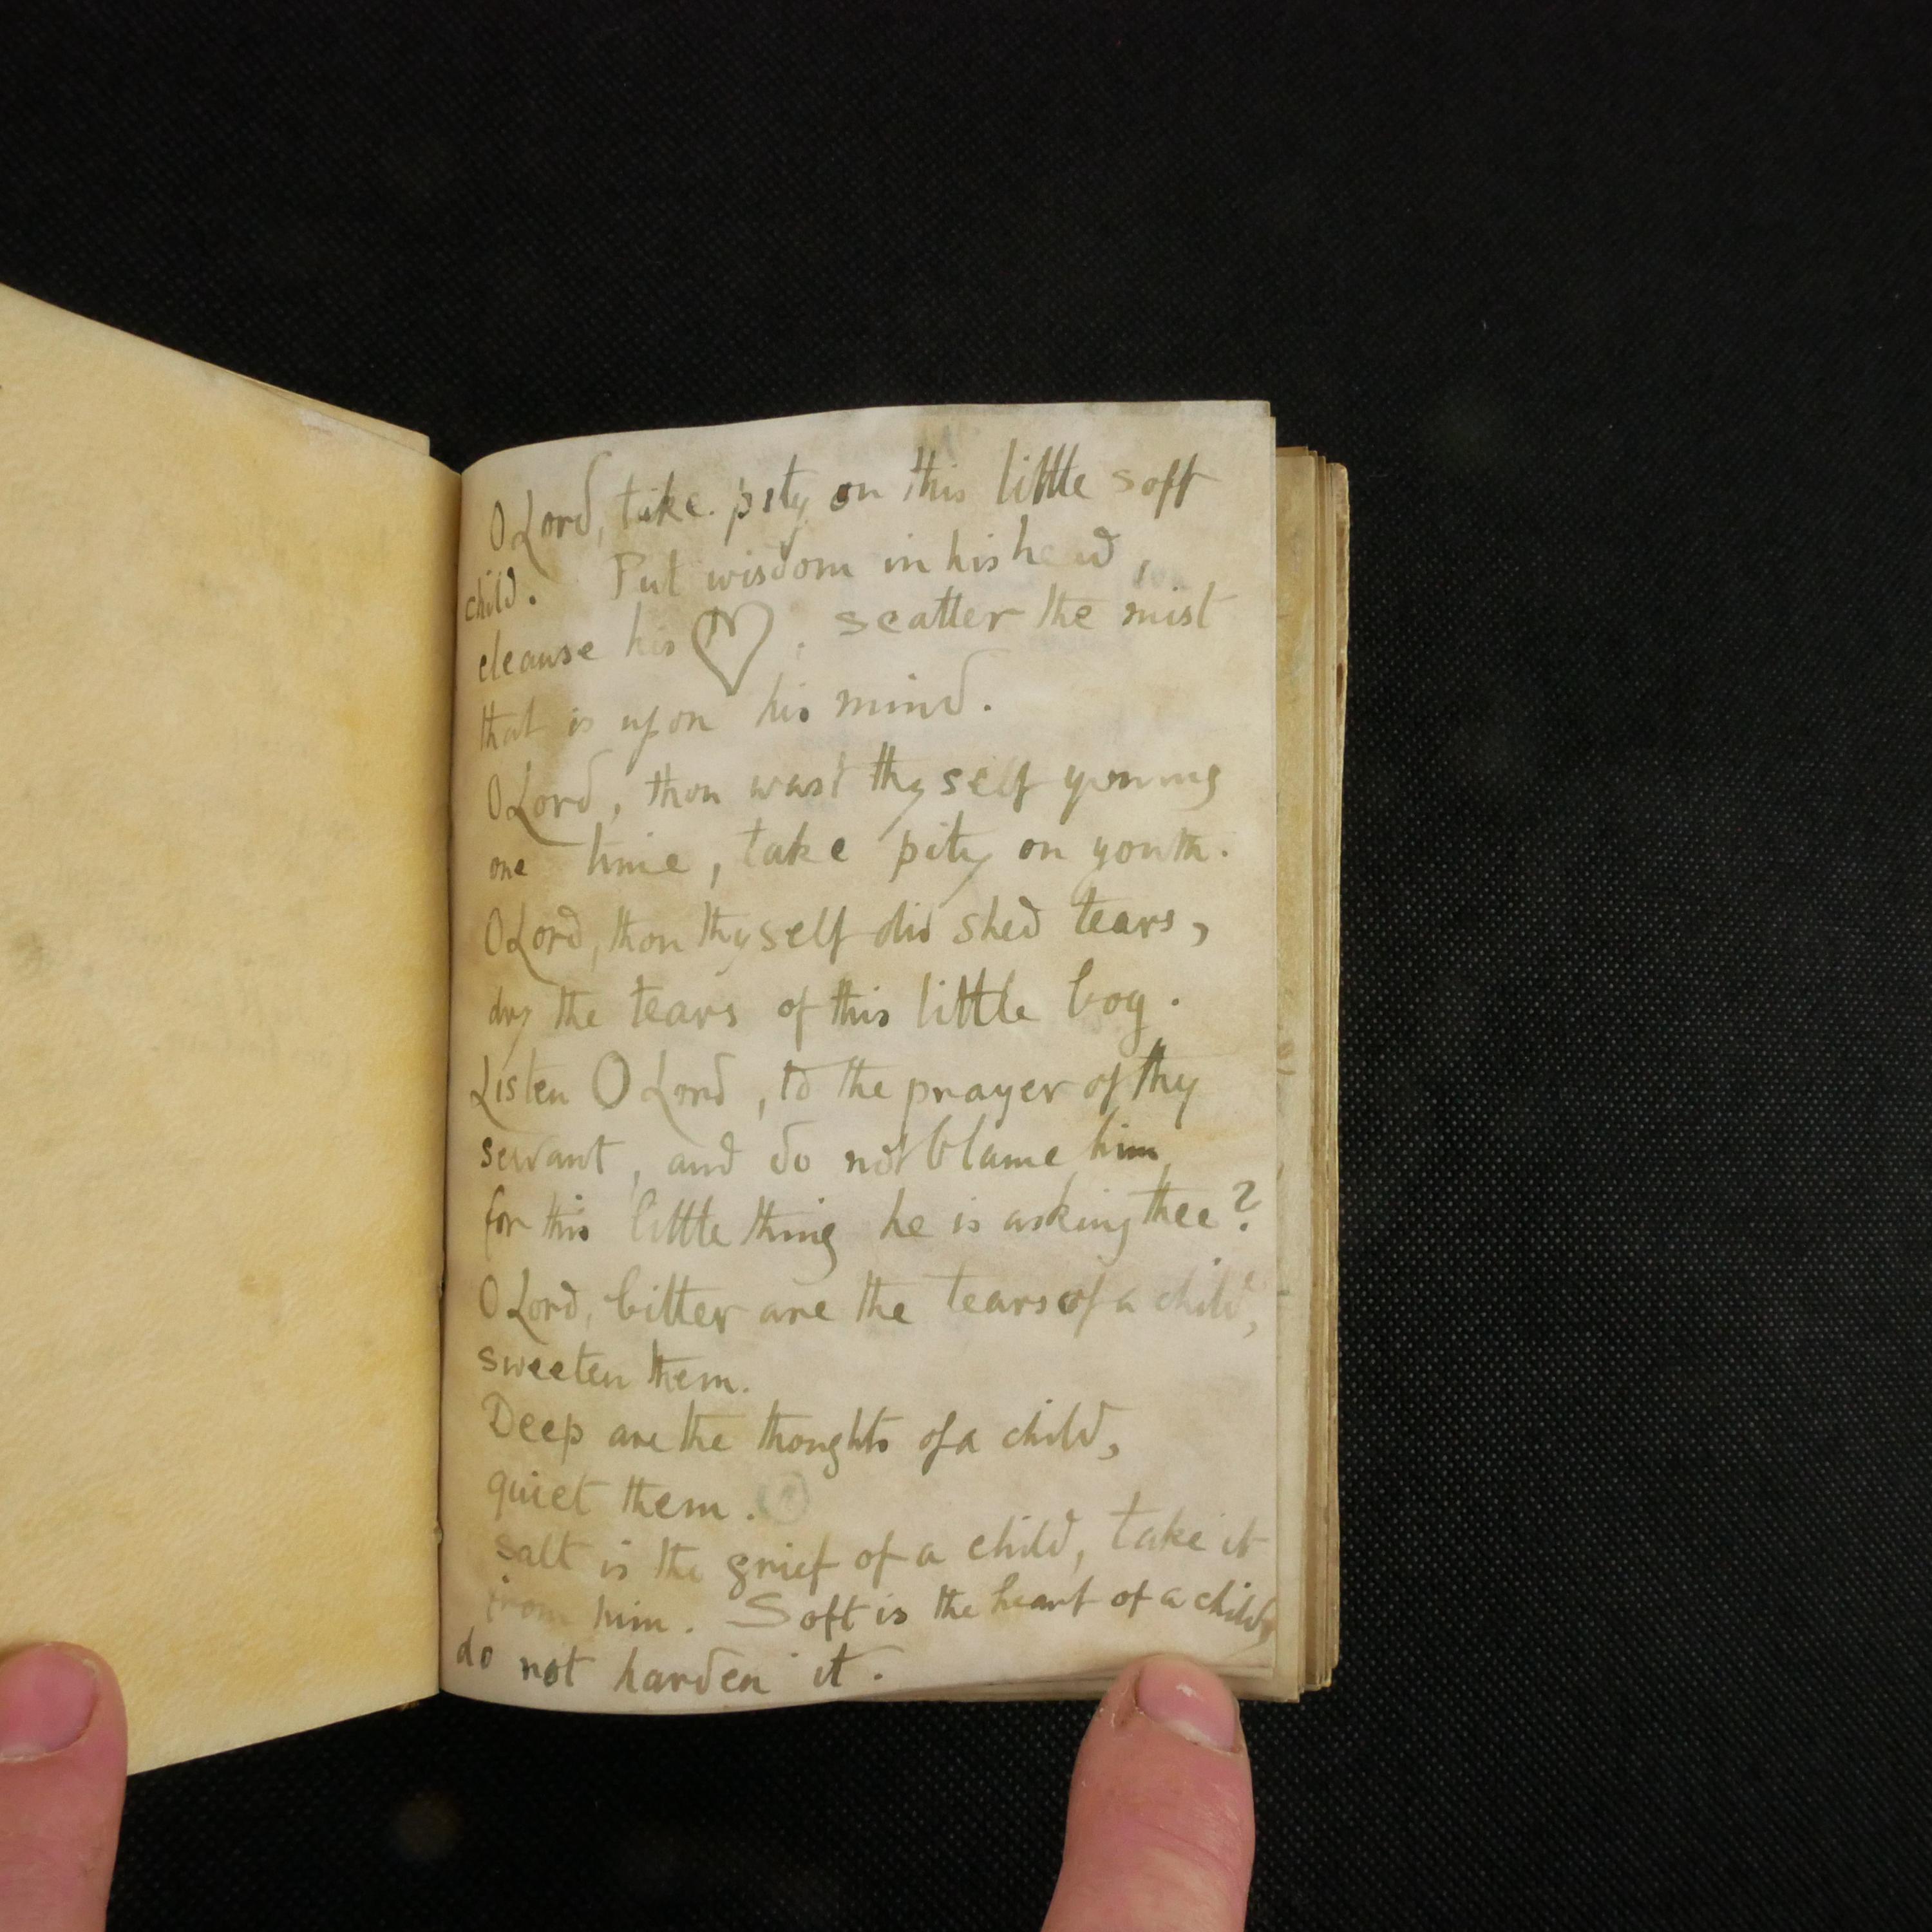 O Lord, take pity on this little soft
child. Put wisdom in his head,
cleanse his ♡, scatter the mist
that is upon his mind.
O Lord, thou wast thyself young
one time, take pity on youth.
O Lord, thou thyself did shed tears,
dry the tears of this little boy.
Listen O Lord, to the prayer of thy
servant, and do not blame him
for this little thing he is asking thee?
O Lord, bitter are the tears of a child,
sweeten them.
Deep are the thoughts of a child,
quiet them.
Salt is the grief of a child, take it
from him. Soft is the heart of a child,
do not harden it.